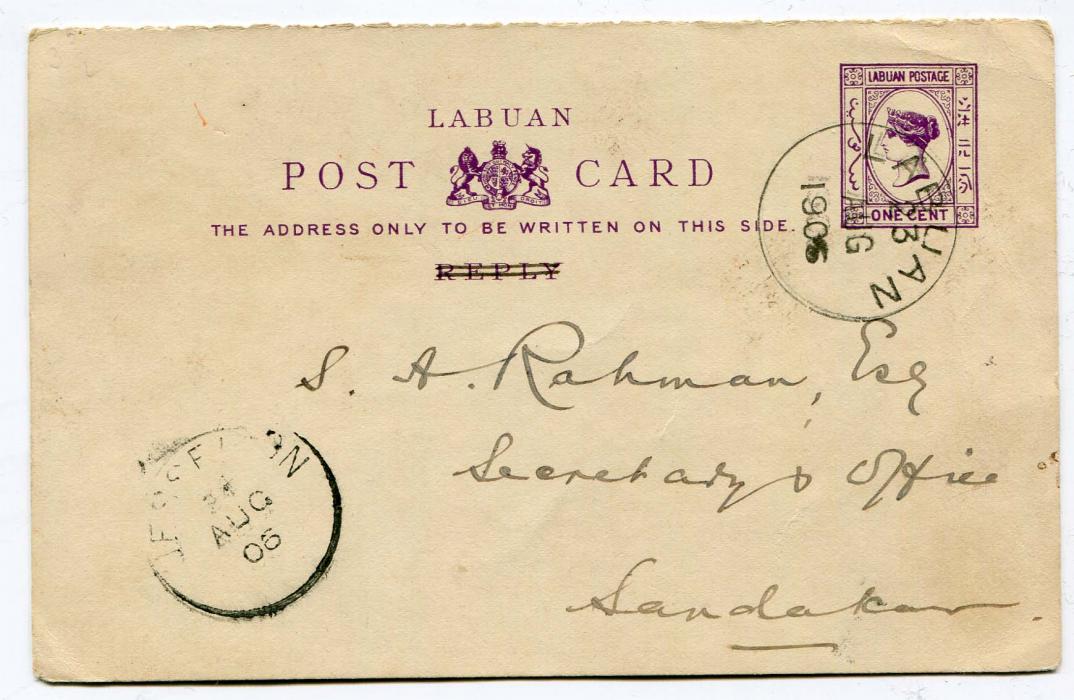 LABUAN POSTAGE
LABUAN
POST CARD
DIEU ET MON DROIT
THE ADDRESS ONLY TO BE WRITTEN ON THIS SIDE.
REPLY
ONE CENT
LABUAN
23
AUG
1906
S. A. Rahman, Esq
Secretary's Office
Sandakan
JESSELTON
24
AUG
06